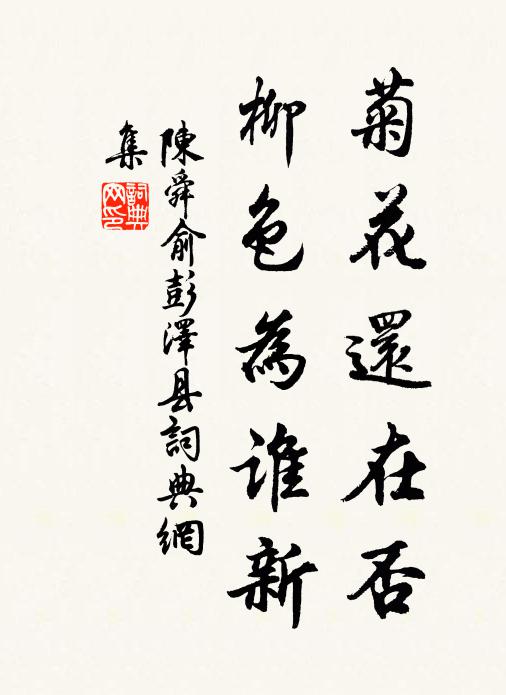 菊花還在否
柳色為誰新
陳舜俞彭澤县詞典網
集
詞典網印